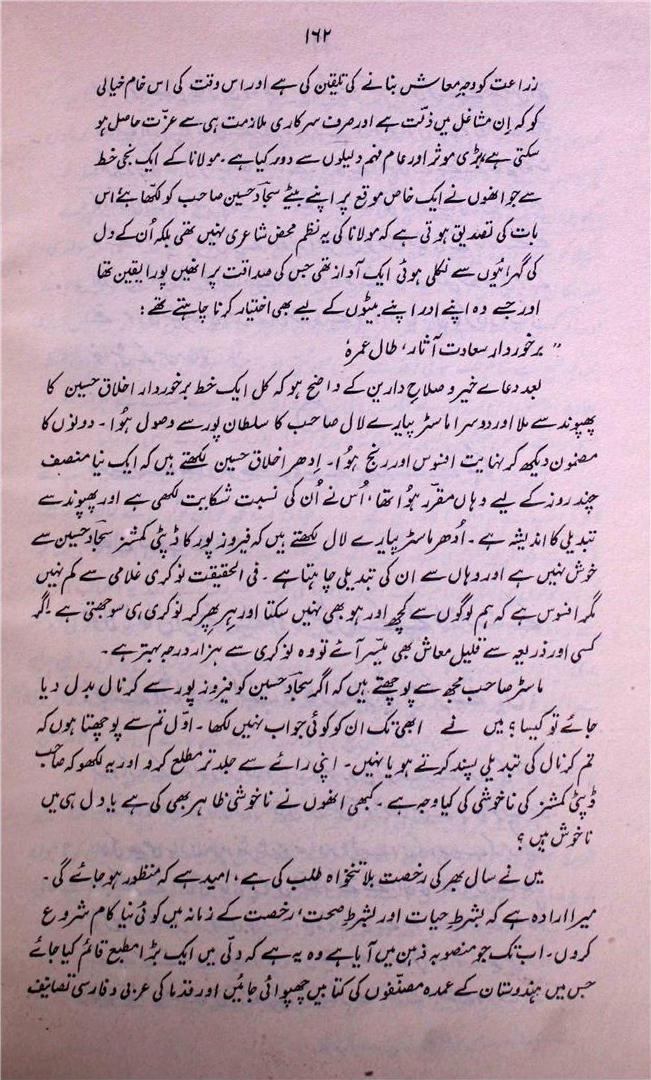 ۱۶۲
زراعت کو وجہِ معاش بنانے کی تلقین کی ہے اور اس وقت کی اس خام خیالی
کو کہ اِن مشاغل میں ذلّت ہے اور صرف سرکاری ملازمت ہی سے عزّت حاصل ہو
سکتی ہے، بڑی موثر اور عام فہم دلیلوں سے دور کیا ہے۔ مولانا کے ایک نجی خط
سے جو انھوں نے ایک خاص موقع پر اپنے بیٹے سجّاد حسین صاحب کو لکھّا ہے، اس
بات کی تصدیق ہوتی ہے کہ مولانا کی یہ نظم محض شاعری نہیں تھی بلکہ اُن کے دل
کی گہرائیوں سے نکلی ہوئی ایک آواز تھی جس کی صداقت پر انھیں پورا یقین تھا
اور جسے وہ اپنے اور اپنے بیٹوں کے لیے بھی اختیار کرنا چاہتے تھے :
" برخوردار سعادت آثار، طال عمرہٗ
بعد دعاے خیر و صلاحِ دارین کے واضح ہو کہ کل ایک خط برخوردار اخلاق حسین کا
پھپوند سے ملا اور دوسرا ماسٹر پیارے لال صاحب کا سلطان پور سے وصول ہُوا۔ دونوں کا
مضمون دیکھ کر نہایت افسوس اور رنج ہُوا۔ اِدھر اخلاق حسین لکھتے ہیں کہ ایک نیا منصف
چند روز کے لیے وہاں مقرّر ہُوا تھا، اُس نے اُن کی نسبت شکایت لکھی ہے اور پھپوند سے
تبدیلی کا اندیشہ ہے۔ اُدھر ماسٹر پیارے لال لکھتے ہیں کہ فیروز پور کا ڈپٹی کمشنر سجّاد حسین سے
خوش نہیں ہے اور وہاں سے ان کی تبدیلی چاہتا ہے۔ فی الحقیقت نوکری غلامی سے کم نہیں
مگر افسوس ہے کہ ہم لوگوں سے کچھ اور ہو بھی نہیں سکتا اور ہِر پھِر کر نوکری ہی سوجھتی ہے۔ اگر
کسی اور ذریعہ سے قلیل معاش بھی میسّر آئے تو وہ نوکری سے ہزار درجہ بہتر ہے۔
ماسٹر صاحب مجھ سے پوچھتے ہیں کہ اگر سجّاد حسین کو فیروز پور سے کرنال بدل دیا
جائے تو کیسا؟ میں نے ابھی تک ان کو کوئی جواب نہیں لکھا۔ اوّل تم سے پوچھتا ہوں کہ
تم کرنال کی تبدیلی پسند کرتے ہو یا نہیں۔ اپنی رائے سے جلد تر مطلع کرو اور یہ لکھو کہ صاحب
ڈپٹی کمشنر کی ناخوشی کی کیا وجہ ہے۔ کبھی انھوں نے ناخوشی ظاہر بھی کی ہے یا دل ہی میں
ناخوش ہیں ؟
میں نے سال بھر کی رخصت بلا تنخواہ طلب کی ہے، امید ہے کہ منظور ہو جائے گی۔
میرا ارادہ ہے کہ بشرطِ حیات اور بشرطِ صحت، رخصت کے زمانہ میں کوئی نیا کام شروع
کروں۔ اب تک جو منصوبہ ذہن میں آیا ہے وہ یہ ہے کہ دلّی میں ایک بڑا مطبع قائم کیا جائے
جس میں ہندوستان کے عمدہ مصنّفوں کی کتابیں چھپوائی جائیں اور قدما کی عربی و فارسی تصانیف